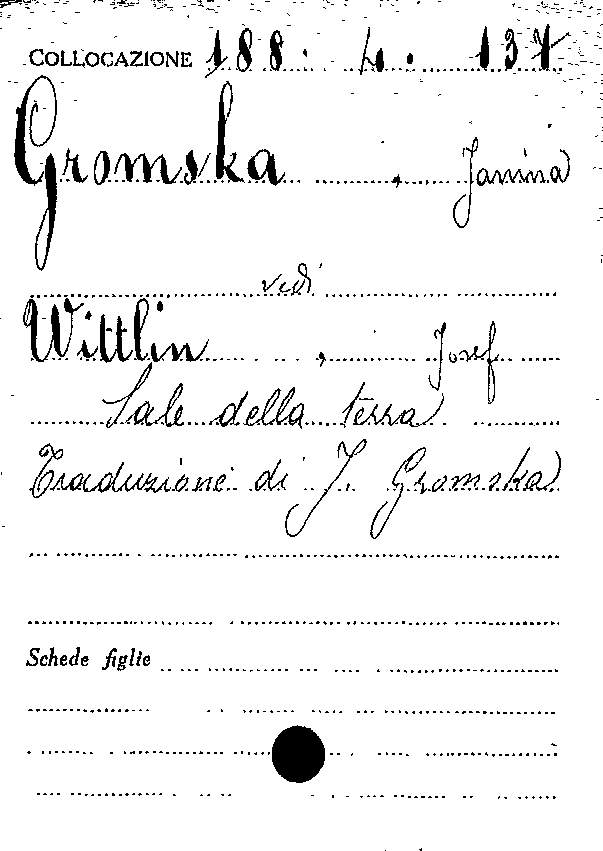 COLLOCAZIONE 188. 4. 137
Gromska, Janina
vedi
Wittlin, Josef
Sale della terra
Traduzione di J. Gromska
Schede figlie